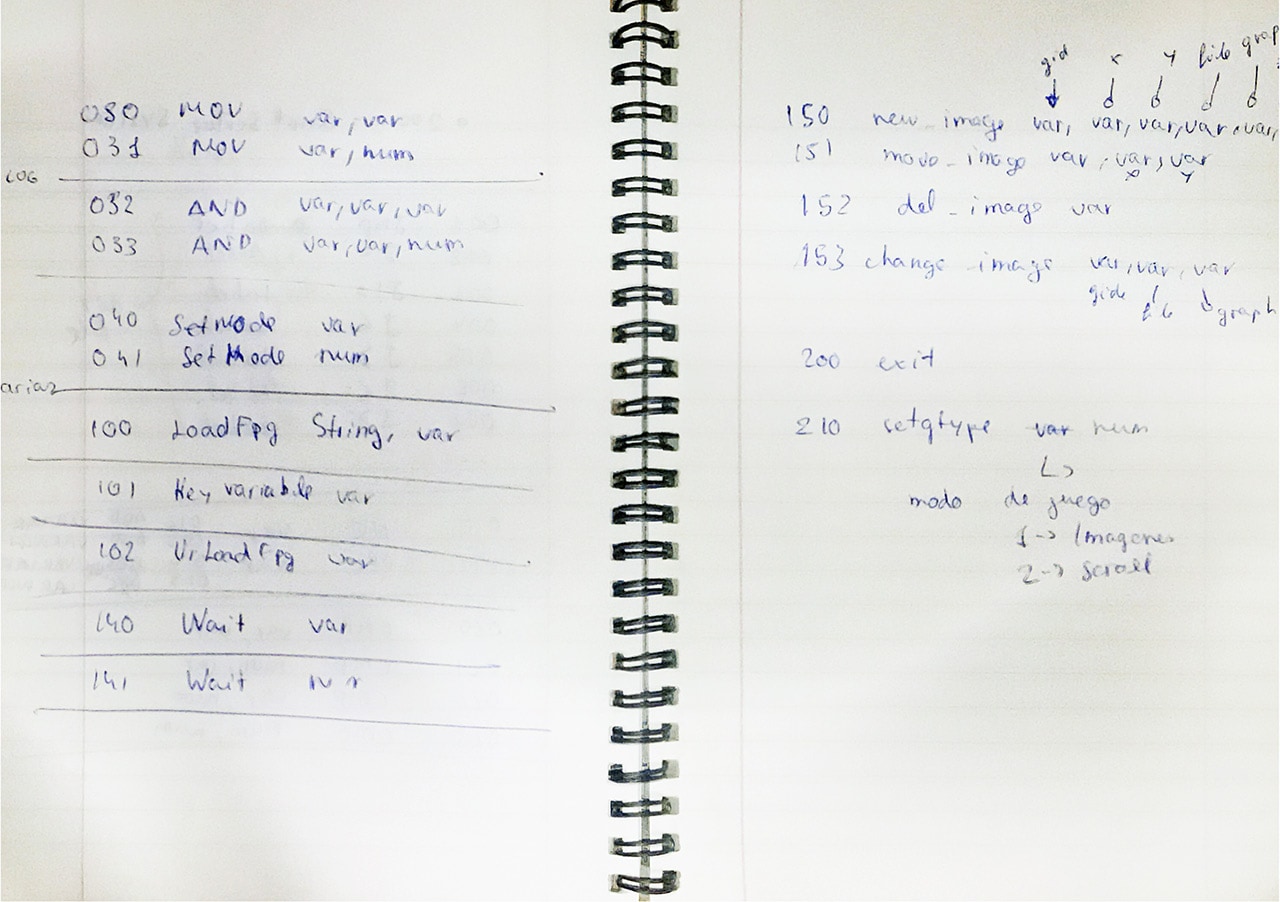 030 MOV var, var
031 MOV var, num
LOG
032 AND var, var, var
033 AND var, var, num
040 SetMode var
041 SetMode num
100 LoadFpg String, var
101 Key variable var
102 UrLoadFpg var
140 Wait var
141 Wait
gid x y file grap
150 new_image var, var, var, var, var,
151 move_image var, var, var
x y
152 del_image var
153 change_image var, var, var
gide graph
200 exit
210 setgtype var num
↳
modo de juego
1-> Imagenes
2-> scroll